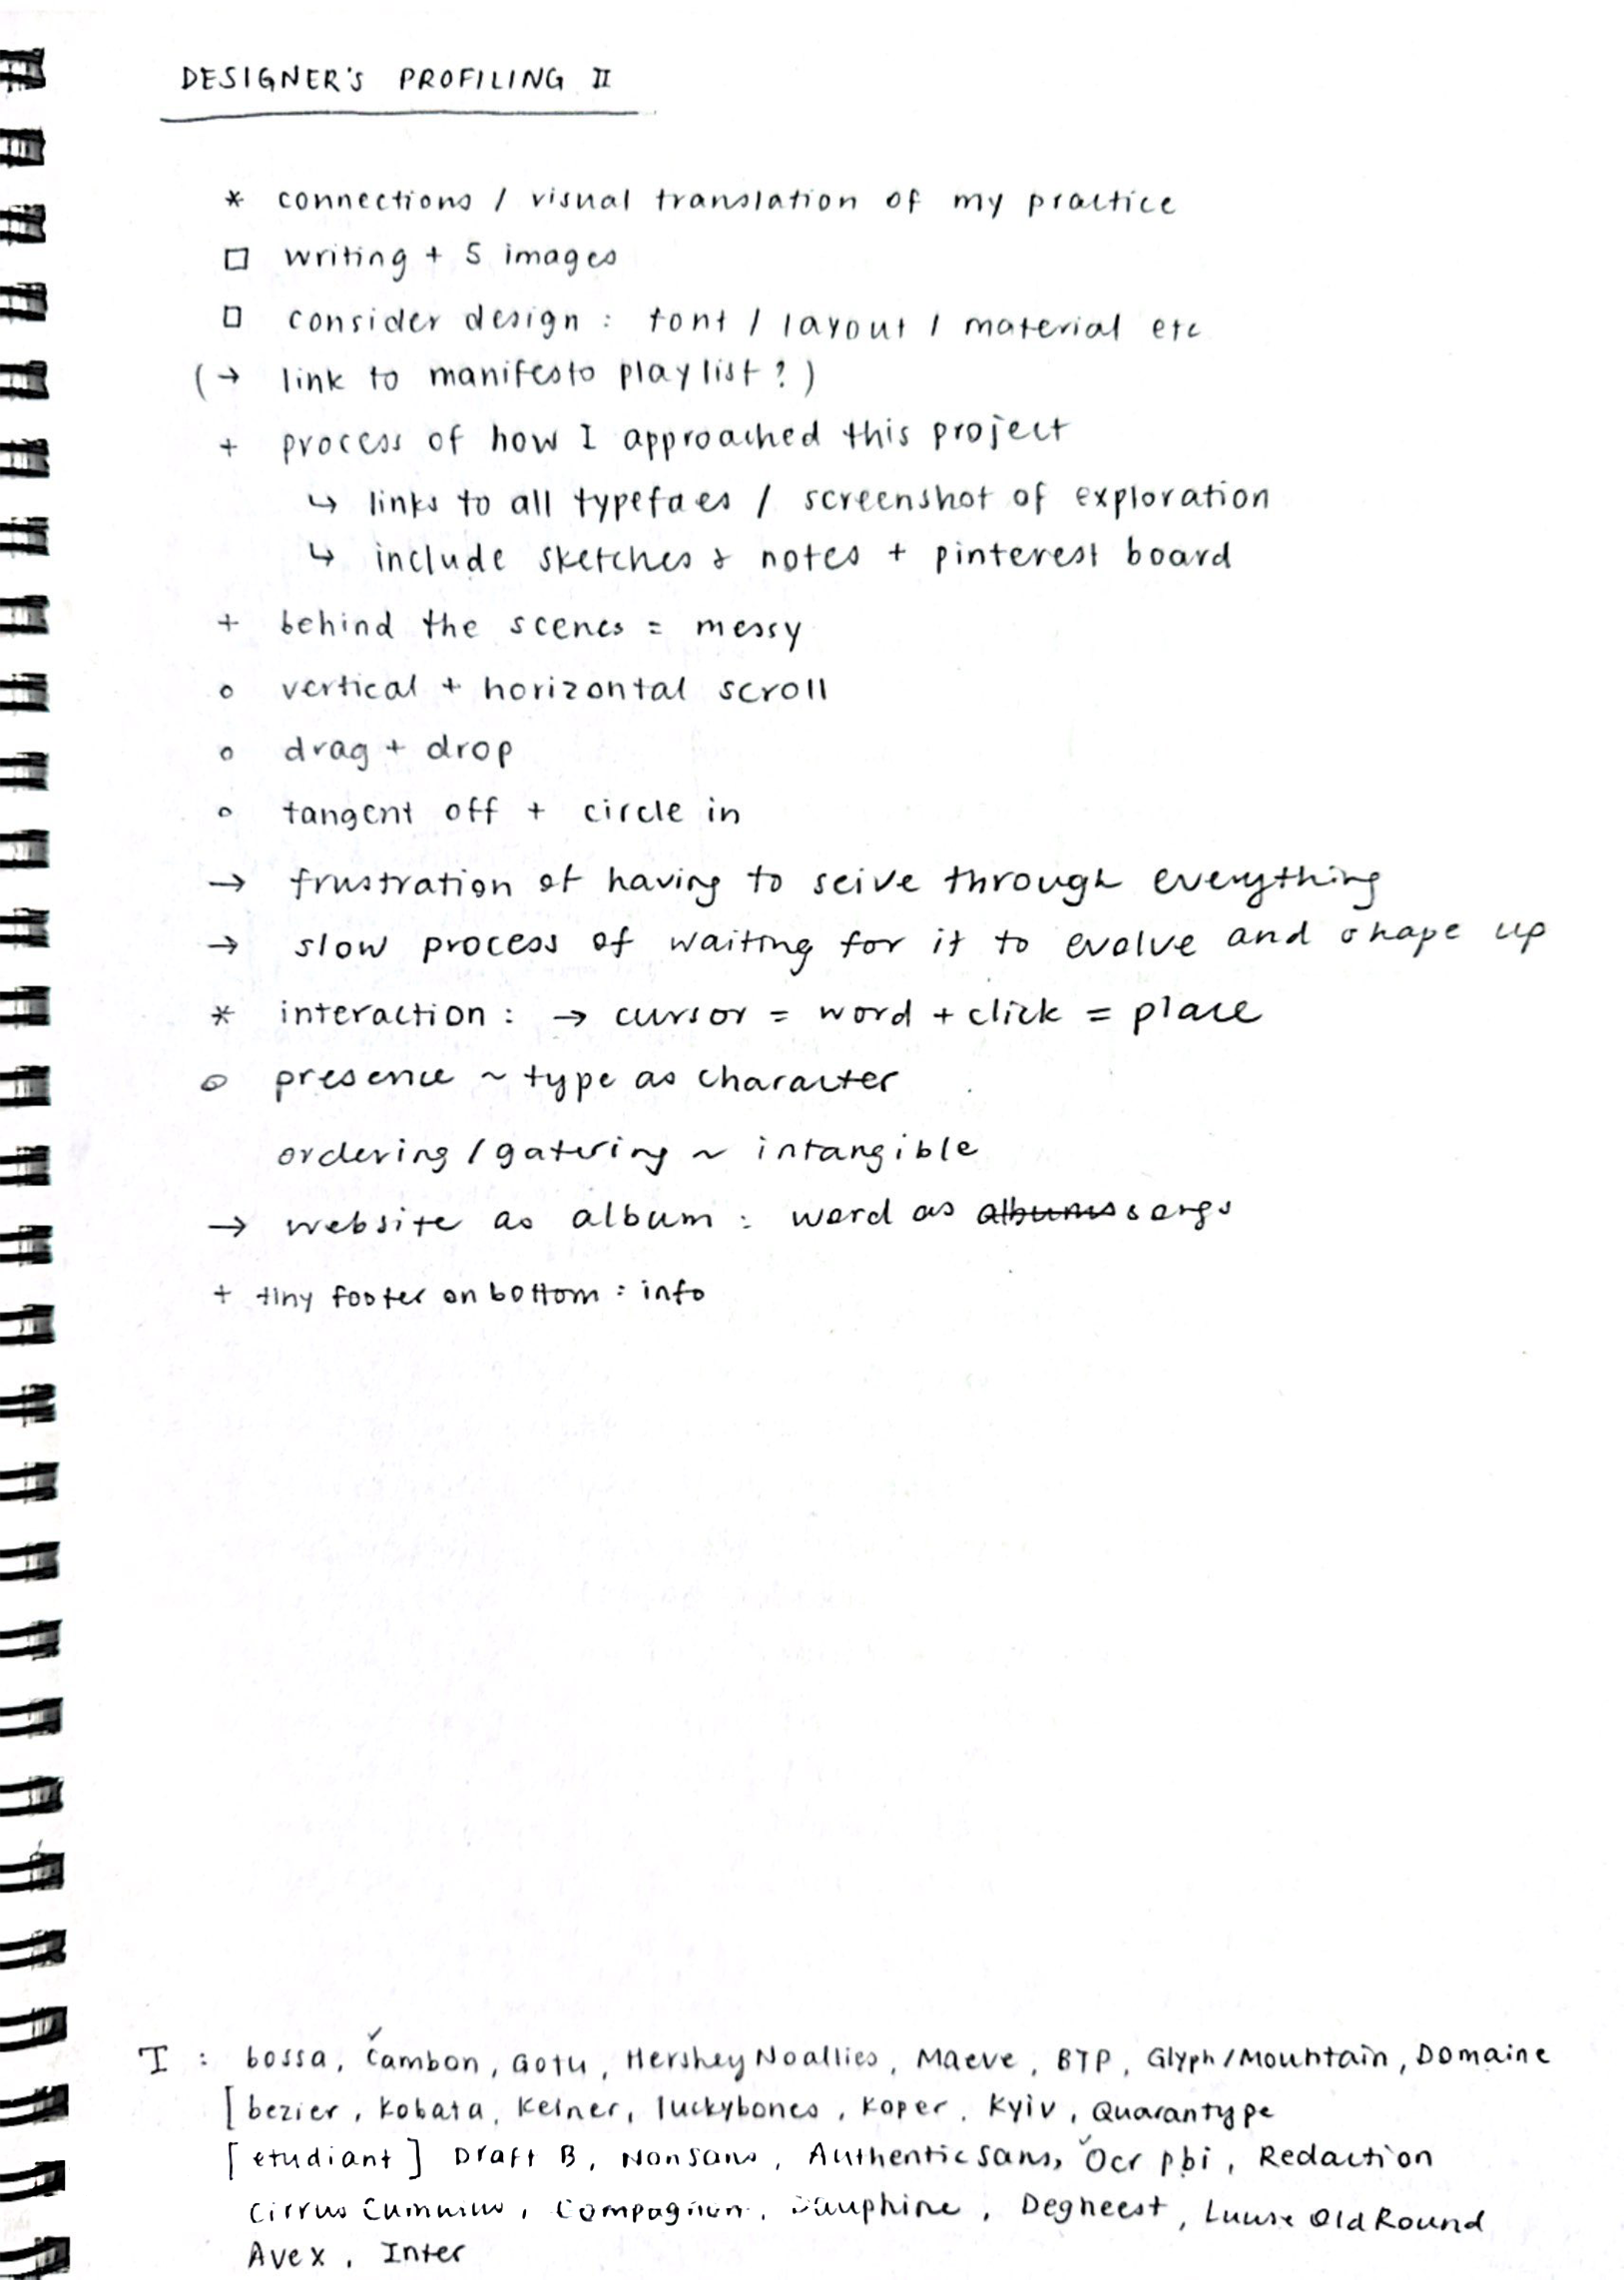 DESIGNER'S PROFILING II
* connections / visual translation of my practice
□ writing + 5 images
□ consider design : font / layout / material etc
(→ link to manifesto playlist ? )
+ process of how I approached this project
↳ links to all typefaes / screenshot of exploration
↳ include sketches & notes + pinterest board
+ behind the scenes = messy
o vertical + horizontal scroll
o drag + drop
o tangent off + circle in
→ frustration of having to seive through everything
→ slow process of waiting for it to evolve and shape up
* interaction : → cursor = word + click = place
o presence ~ type as character
ordering / gatering ~ intangible
→ website as album : word as albums songs
+ tiny footer on bottom : info
T : bossa, Cambon, Gotu, Hershey Noallies, Maeve, BTP, Glyph/Mountain, Domaine
[ bezier, Kobata, Kelner, luckybones, Koper, Kyiv, Quarantype
[ etudiant ] Draft B, Non Sans, Authentic Sans, Ocr pbi, Redaction
Cirrus Cumulus, Compagnon, Dauphine, Degheest, Old Round
Avex, Inter